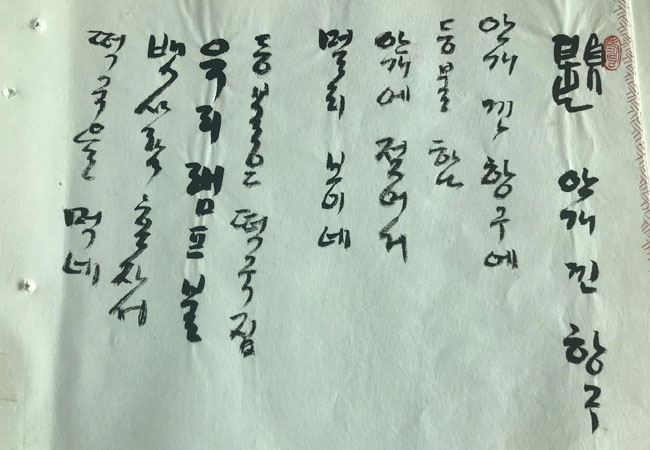 題 안개 낀 항구
안개 낀 항구에
등불 하나
안개에 젖어서
멀리 보이네
등불은 떡국집
유리램프불
뱃사람 혼자서
떡국을 먹네